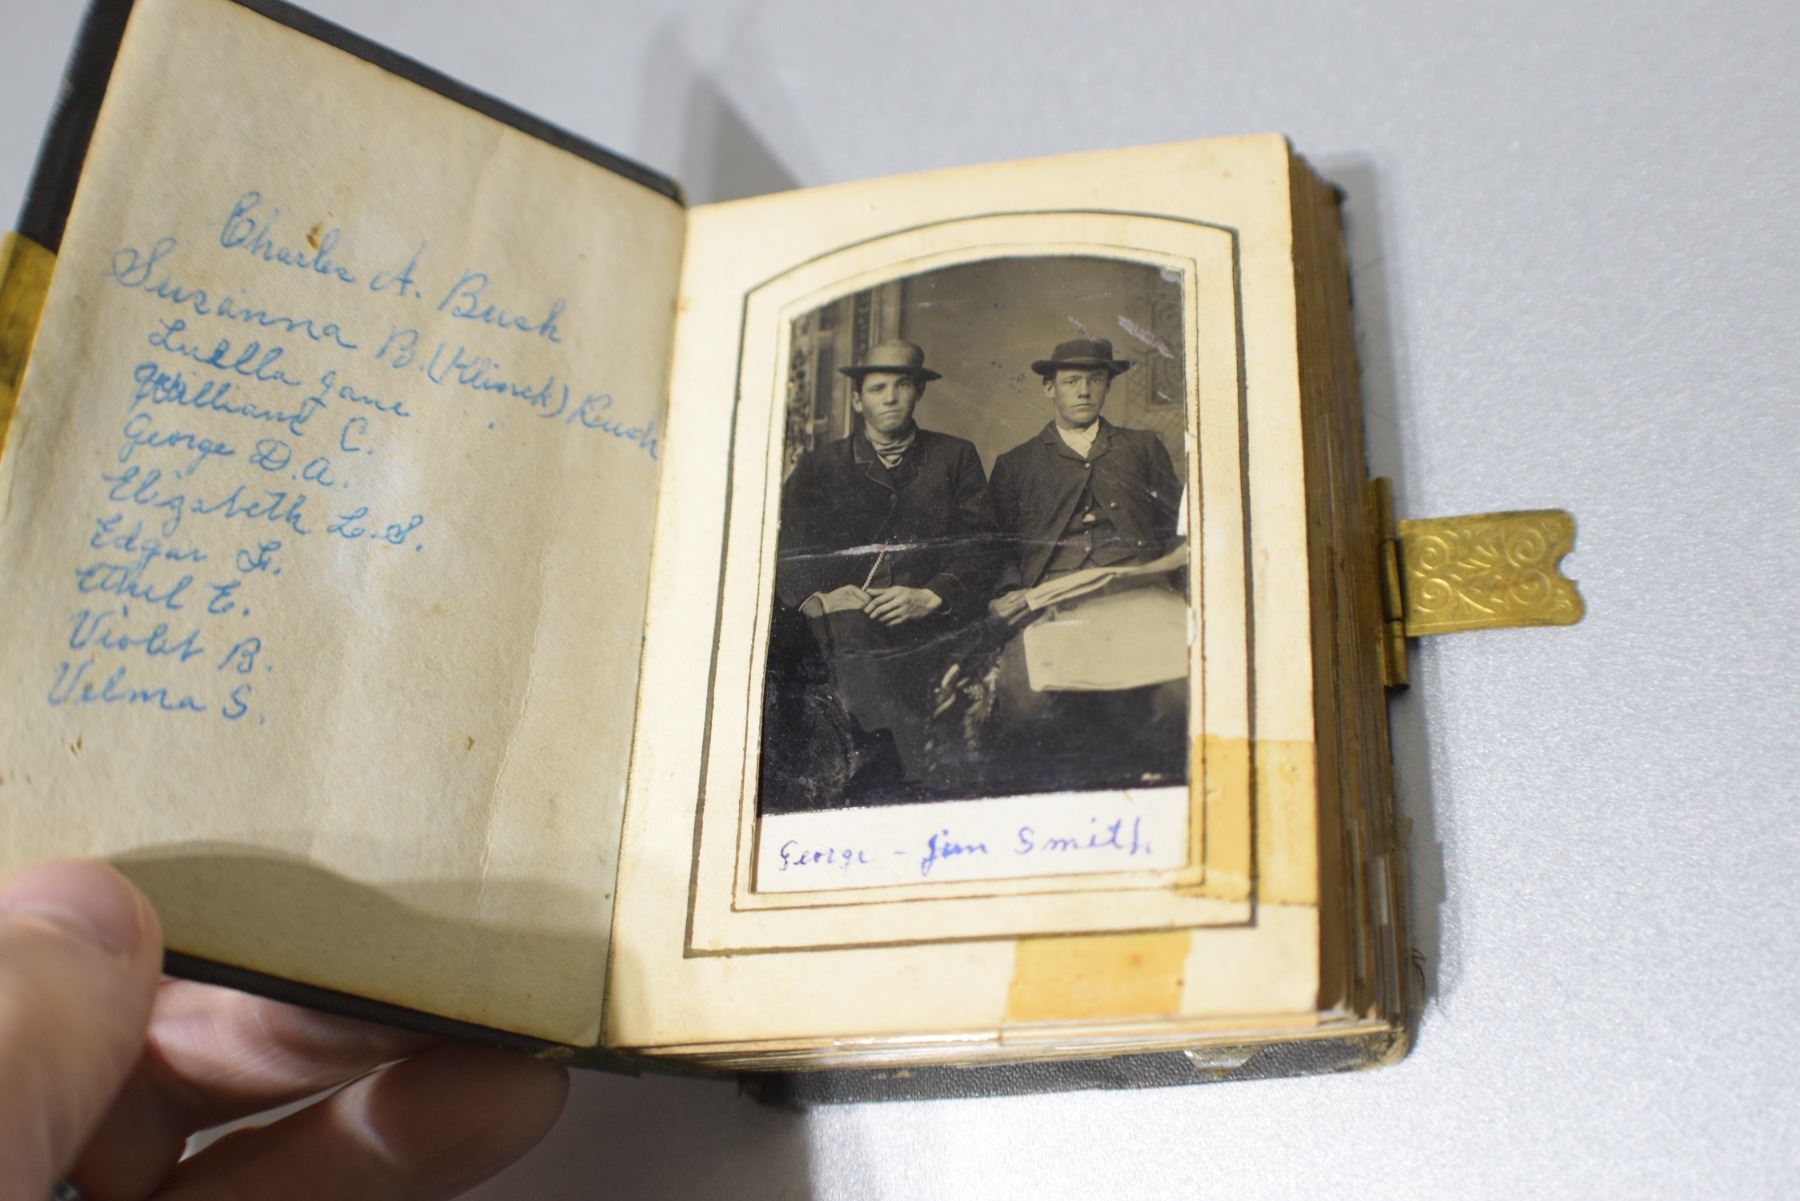 Charles A. Bush
Susanna B. (Klinck) Bush
Luella Jane
William C.
George D.A.
Elizabeth L.S.
Edgar L.
Ethel E.
Violet B.
Velma S.
George - Jim Smith